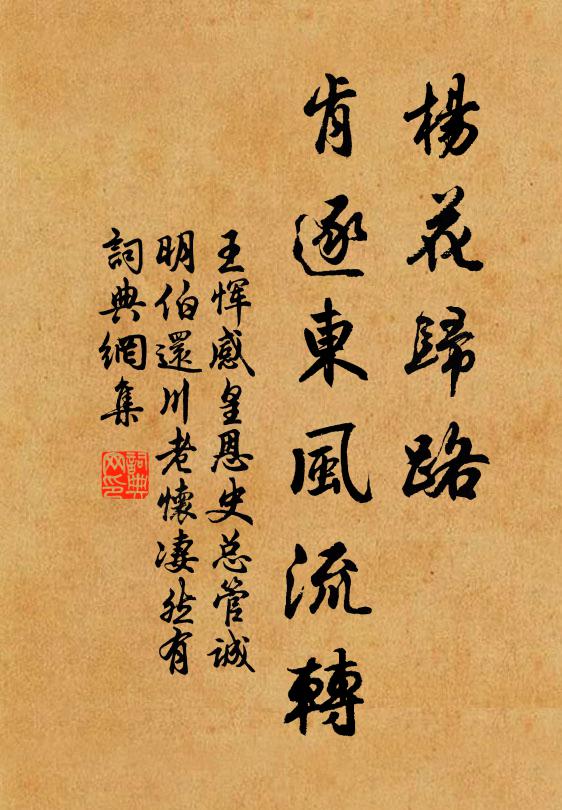 楊花歸路
肯逐東風流轉
王惲感皇恩史总管誠
明伯還川老懷凄然有
詞典網集
詞典
网印